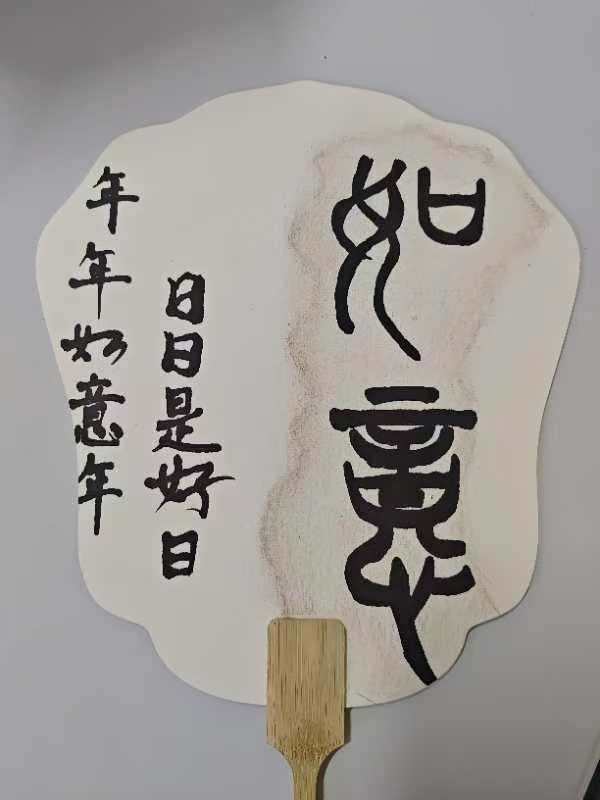 如意
日日是好日
年年如意年